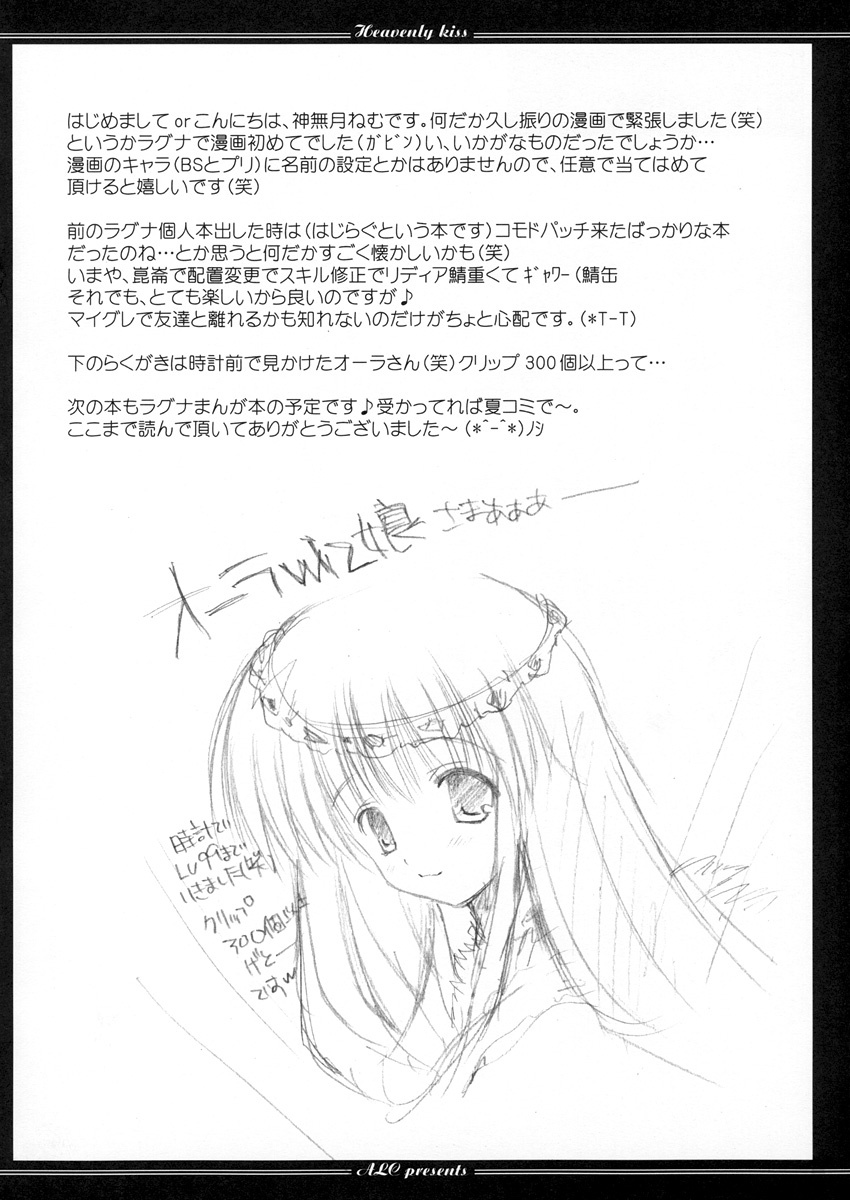 Heavenly kiss
はじめまして or こんにちは、神無月ねむです。何だか久し振りの漫画で緊張しました(笑)
というかラグナで漫画初めてでした(ｶﾞﾋﾞﾝ)い、いかがなものだったでしょうか…
漫画のキャラ(BSとプリ)に名前の設定とかはありませんので、任意で当てはめて
頂けると嬉しいです(笑)
前のラグナ個人本出した時は(はじらぐという本です)コモドパッチ来たばっかりな本
だったのね…とか思うと何だかすごく懐かしいかも(笑)
いまや、崑崙で配置変更でスキル修正でリディア鯖重くて ｷﾞｬﾜｰ (鯖缶
それでも、とても楽しいから良いのですが♪
マイグレで友達と離れるかも知れないのだけがちょと心配です。(*T-T)
下のらくがきは時計前で見かけたオーラさん(笑)クリップ 300 個以上って…
次の本もラグナまんが本の予定です♪受かってれば夏コミで～。
ここまで読んで頂いてありがとうございました～ (*^-^*)ﾉｼ
オーラWiz娘さまぁぁぁー
時計で
Lv99まで
いきました(笑)
クリップ
300個以上
げとー
ALC presents